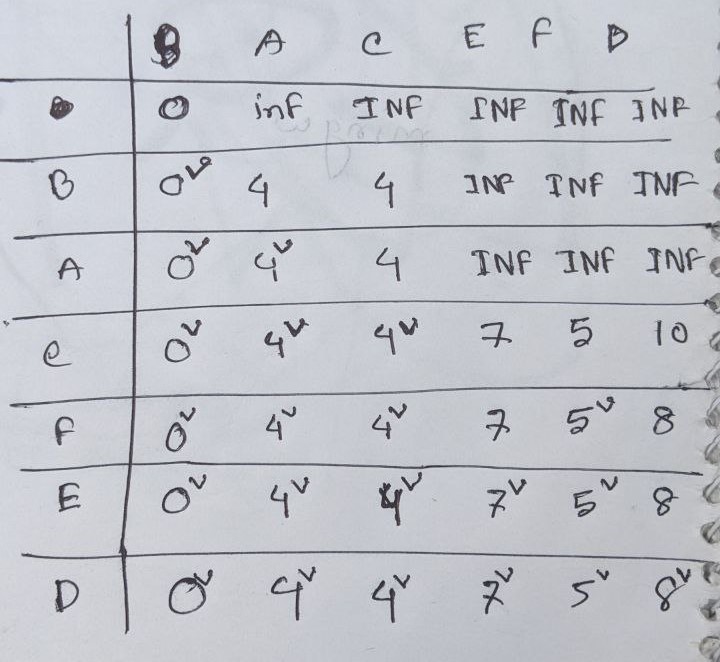 B A C E F D
0 inf INF INF INF INF
B 0 4 4 INF INF INF
A 0 4 4 INF INF INF
C 0 4 4 7 5 10
F 0 4 4 7 5 8
E 0 4 4 7 5 8
D 0 4 4 7 5 8